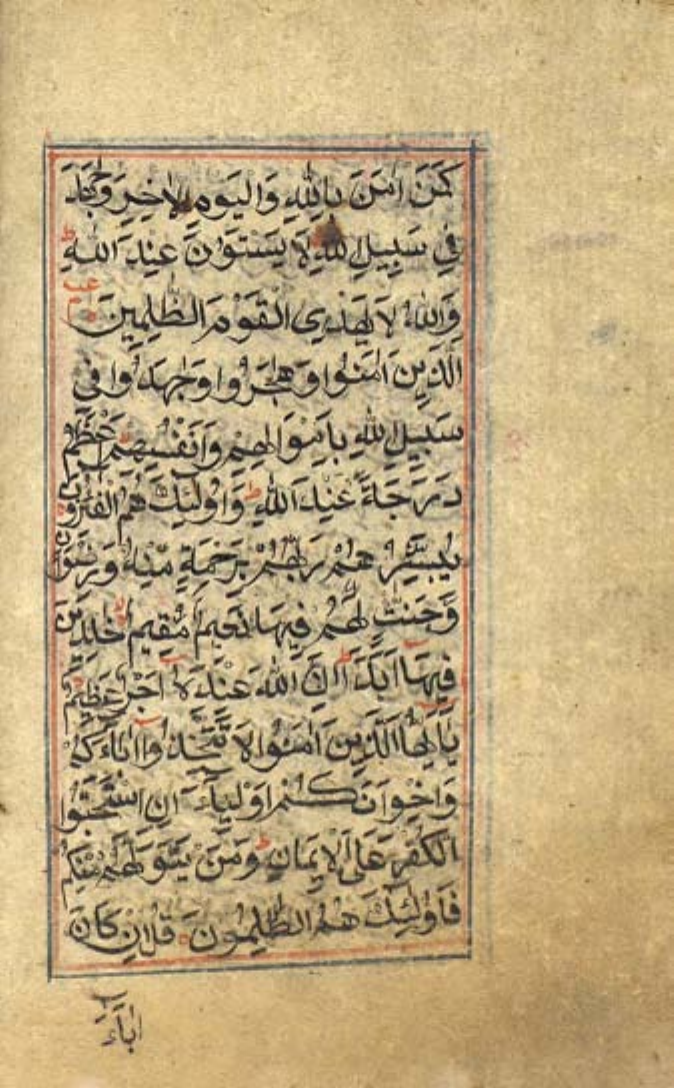 كَمَنْ اٰمَنَ بِاللّٰهِ وَالْيَوْمِ الْاٰخِرِ وَجَاهَدَ
فِيْ سَبِيْلِ اللّٰهِ ط لَا يَسْتَوٗنَ عِنْدَ اللّٰهِ ط
وَاللّٰهُ لَا يَهْدِى الْقَوْمَ الظّٰلِمِيْنَ
اَلَّذِيْنَ اٰمَنُوْا وَهَاجَرُوْا وَجٰهَدُوْا فِيْ
سَبِيْلِ اللّٰهِ بِاَمْوَالِهِمْ وَاَنْفُسِهِمْ اَعْظَمُ
دَرَجَةً عِنْدَ اللّٰهِ ط وَاُولٰٓئِكَ هُمُ الْفَآئِزُوْنَ
يُبَشِّرُهُمْ رَبُّهُمْ بِرَحْمَةٍ مِّنْهُ وَرِضْوَانٍ
وَّجَنّٰتٍ لَّهُمْ فِيْهَا نَعِيْمٌ مُّقِيْمٌ خٰلِدِيْنَ
فِيْهَآ اَبَدًا ط اِنَّ اللّٰهَ عِنْدَهٗٓ اَجْرٌ عَظِيْمٌ
يٰٓاَيُّهَا الَّذِيْنَ اٰمَنُوْا لَا تَتَّخِذُوْٓا اٰبَآءَكُمْ
وَاِخْوَانَكُمْ اَوْلِيَآءَ اِنِ اسْتَحَبُّوا
الْكُفْرَ عَلَى الْاِيْمَانِ ط وَمَنْ يَّتَوَلَّهُمْ مِّنْكُمْ
فَاُولٰٓئِكَ هُمُ الظّٰلِمُوْنَ قُلْ اِنْ كَانَ
اٰبَآؤُ